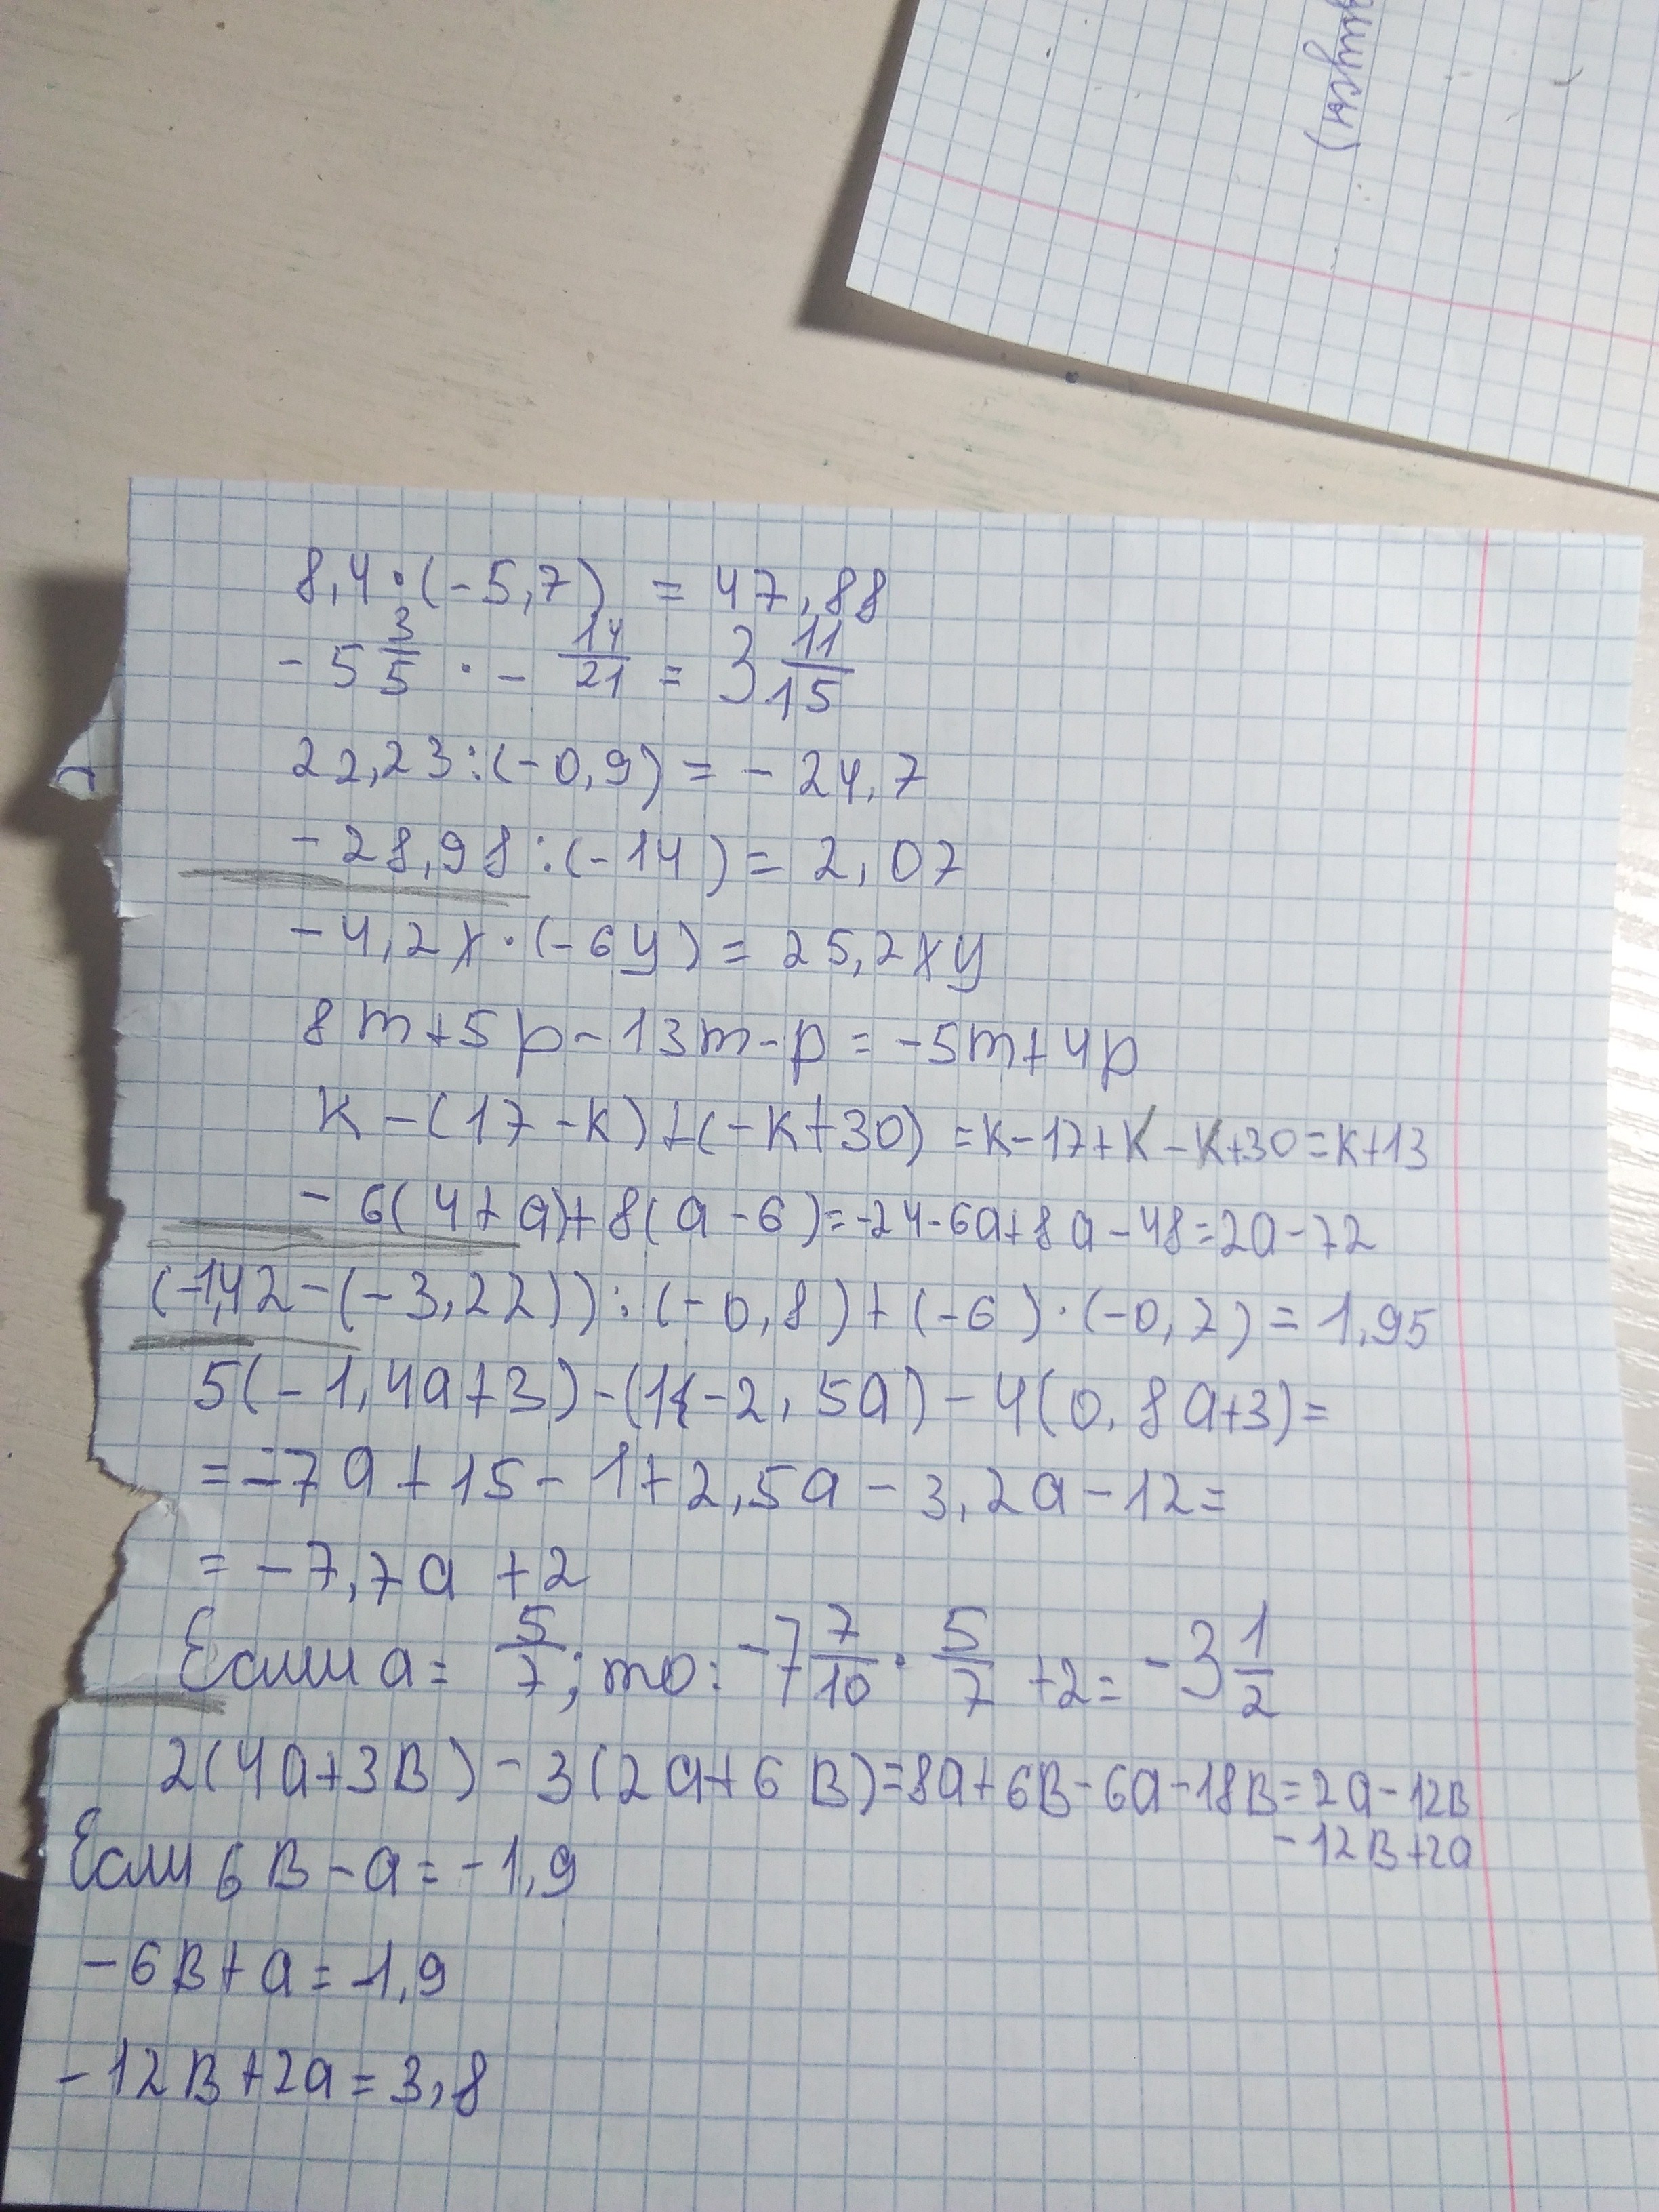 янусы)
8,4·(-5,7) = 47,88
-5 3/5 · - 14/21 = 3 11/15
22,23:(-0,9) = -24,7
-28,98:(-14) = 2,07
-4,2x·(-6y) = 25,2xy
8m+5p-13m-p = -5m+4p
k-(17-k)+(-k+30) = k-17+k-k+30 = k+13
-6(4+a)+8(a-6) = -24-6a+8a-48 = 2a-72
(-1,42-(-3,22)):(-0,8)+(-6)·(-0,2) = 1,95
5(-1,4a+3)-(1-2,5a)-4(0,8a+3) =
= -7a+15-1+2,5a-3,2a-12 =
= -7,7a +2
Если a = 5/7; то: -7 7/10 · 5/7 +2 = -3 1/2
2(4a+3в)-3(2a+6в) = 8a+6в-6a-18в = 2a-12в
-12в+2a
Если 6в-a = -1,9
-6в+a = 1,9
-12в+2a = 3,8